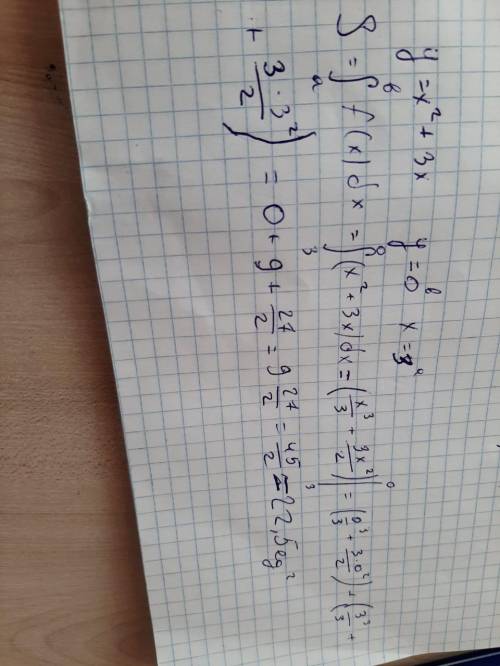 y = x² + 3x y = 0 x = 3
S = ∫ₐᵇ f(x)dx = ∫₃⁰ (x² + 3x)dx = (x³/3 + 3x²/2)|₃⁰ = (0³/3 + 3·0²/2) + (3³/3 +
+ 3·3²/2) = 0 + 9 + 27/2 = 9 27/2 = 45/2 = 22,5 eg²